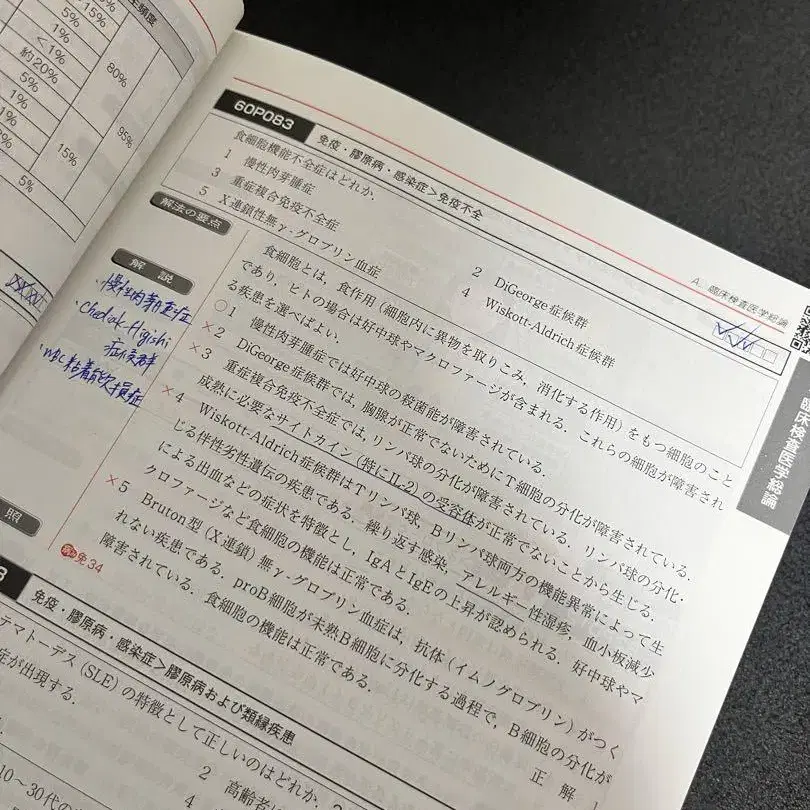 生頻度
5%
15%
5%
1%
<1%
約20%
80%
5%
1%
1%
95%
15%
5%
A. 臨床検査医学総論
臨床検査医学総論
60P083
免疫・膠原病・感染症>免疫不全
食細胞機能不全症はどれか.
1 慢性肉芽腫症
2 DiGeorge症候群
3 重症複合免疫不全症
4 Wiskott-Aldrich症候群
5 X連鎖性無γ-グロブリン血症
解法の要点
食細胞とは,食作用(細胞内に異物を取りこみ,消化する作用)をもつ細胞のこと
であり,ヒトの場合は好中球やマクロファージが含まれる.これらの細胞が障害され
る疾患を選べばよい.
解説
○1 慢性肉芽腫症では好中球の殺菌能が障害されている.
×2 DiGeorge症候群では,胸腺が正常でないためにT細胞の分化が障害されている.
×3 重症複合免疫不全症では,リンパ球の分化が障害されている.リンパ球の分化・
成熟に必要なサイトカイン(特にIL-2)の受容体が正常でないことから生じる.
×4 Wiskott-Aldrich症候群はTリンパ球,Bリンパ球両方の機能異常によって生
じる伴性劣性遺伝の疾患である.繰り返す感染,アレルギー性湿疹,血小板減少
による出血などの症状を特徴とし,IgAとIgEの上昇が認められる.好中球やマ
クロファージなど食細胞の機能は正常である.
×5 Bruton型(X連鎖)無γ-グロブリン血症は,抗体(イムノグロブリン)がつく
れない疾患である.proB細胞が未熟B細胞に分化する過程で,B細胞の分化が
障害されている.食細胞の機能は正常である.
・慢性肉芽腫症
・Chediak-Higishi
症候群
・WBC粘着能欠損症
照
免34
正解
免疫・膠原病・感染症>膠原病および類縁疾患
テマトーデス(SLE)の特徴として正しいのはどれか.
症が出現する.
2 高齢者に
10~30代の
4